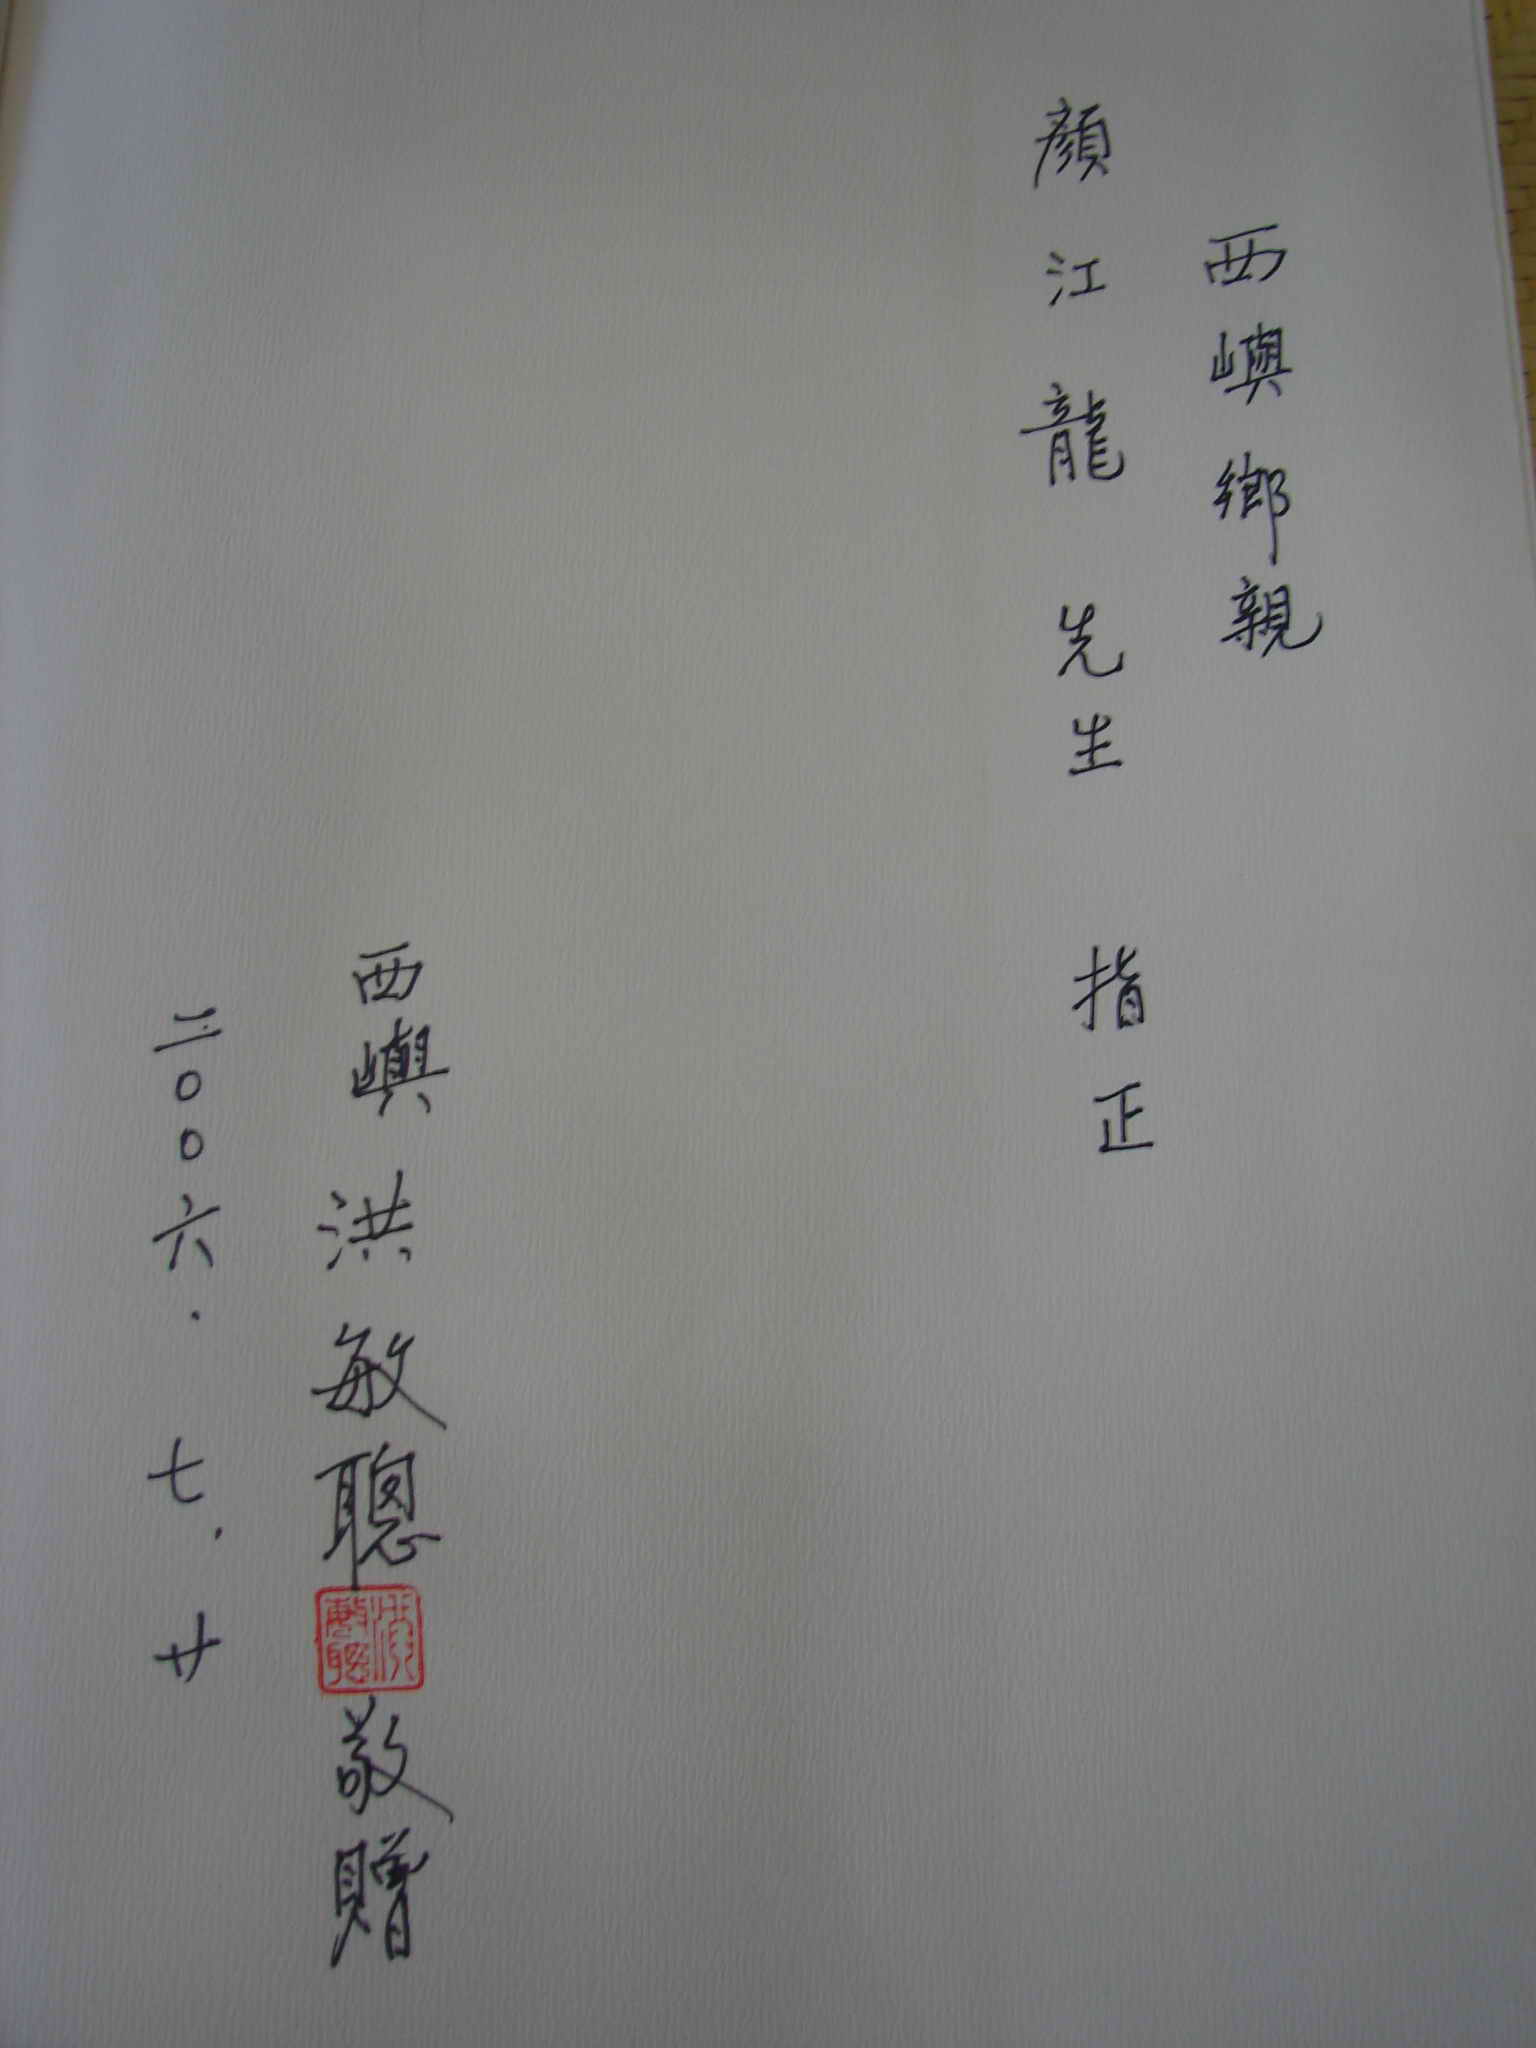 西嶼鄉親
顏江龍先生 指正
西嶼洪敏聰敬贈
洪敏聰
二〇〇六.七.廿